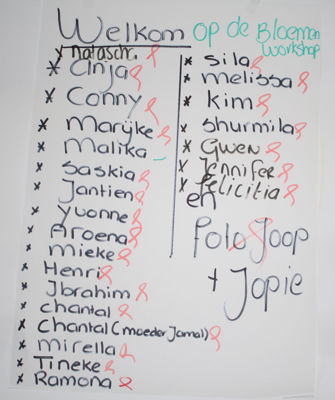 Welkom op de Bloemen
workshop
* natasch.
* Anja
* Conny
* Marijke
* Malika
* Saskia
* Jantien
* Yvonne
* Aroena
* mieke
* Henri
* Ibrahim
* chantal
* Chantal (moeder Jamal)
* mirella
* Tineke
* Ramona
* Sila
* melissa
* kim
* Shurmila
* Gwen
* Jennifer
* felicitia
en
Foto Joop
+ Jopie